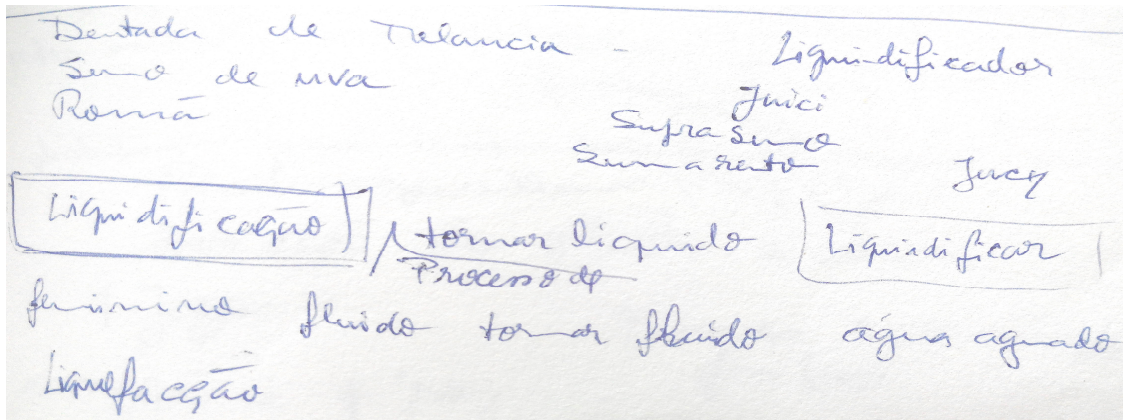 Dentada de Melancia - Liquidificador
Sumo de uva Juici
Romã Supra Sumo
Sumarento Jucy
Liquidificação / tornar líquido Liquidificar
Processo de
feminino fluido tornar fluido água aguado
Liquefacção